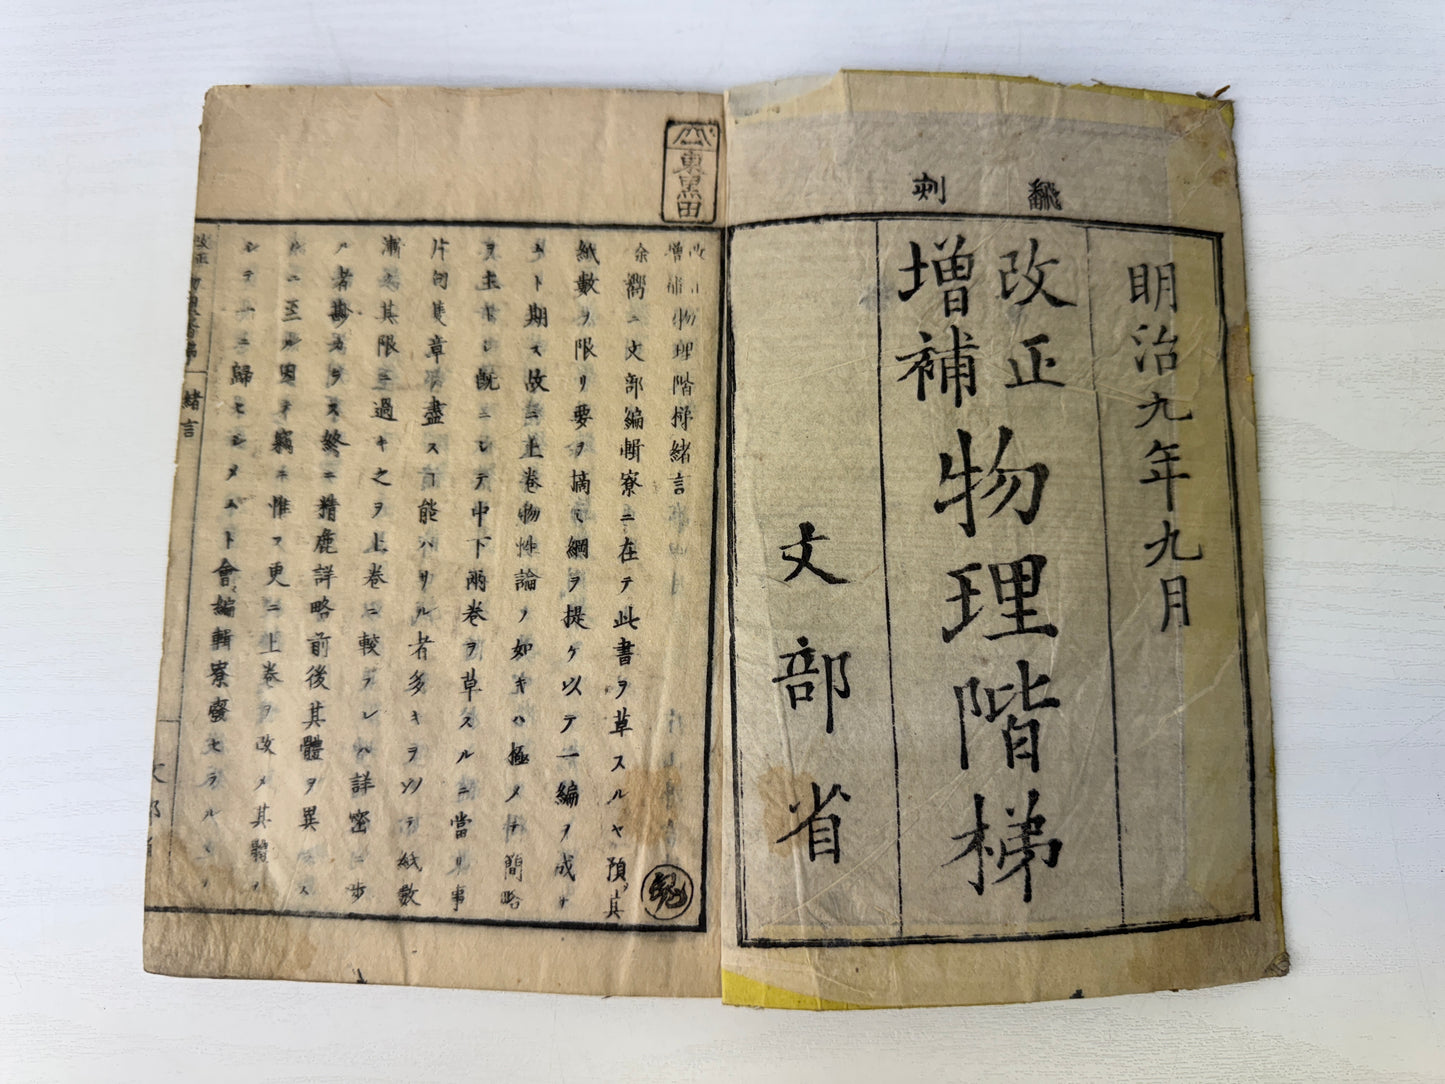 翻刻
明治九年九月
改正
増補
物理階梯
文部省
東黒田
改正増補物理階梯緒言
余嚮ニ文部編輯寮ニ在テ此書ヲ草スルヤ預其
紙數ヲ限リ要ヲ摘ミ綱ヲ提ケ以テ一編ヲ成サ
ント期ス故ニ上卷物性論ノ如キハ極メテ簡略
ヲ主トシ既ニシテ中下兩卷ヲ草スルニ當リ事
片言隻章ニ盡スヿ能ハサル者多キヲ以テ紙數
漸ク其限ニ過キ之ヲ上卷ニ較フレハ詳密ニ歩
ル者尠シトス終ニ精麁詳略前後其體ヲ異ニス
ルニ至ル因テ竊ニ惟ス更ニ上卷ヲ改メ其體ヲ
シテ一ニ歸セシメント會編輯寮廢セラル
改正
緒言
文部省